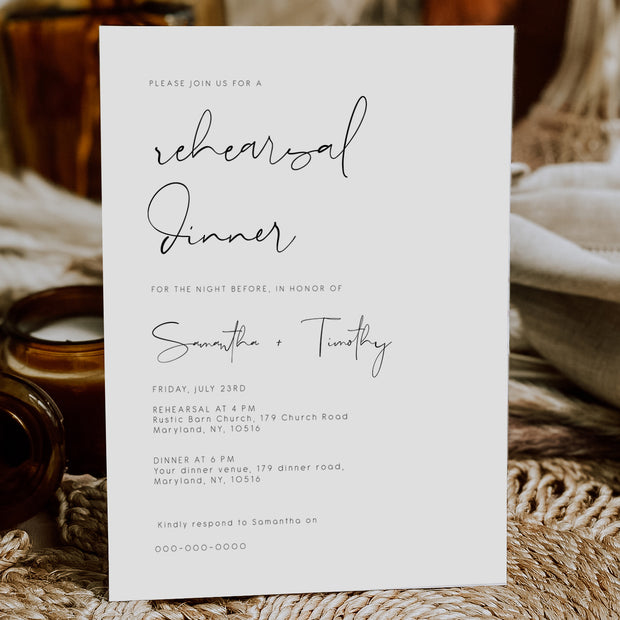 PLEASE JOIN US FOR A
rehearsal
Dinner
FOR THE NIGHT BEFORE, IN HONOR OF
Samantha + Timothy
FRIDAY, JULY 23RD
REHEARSAL AT 4 PM
Rustic Barn Church, 179 Church Road
Maryland, NY, 10516
DINNER AT 6 PM
Your dinner venue, 179 dinner road,
Maryland, NY, 10516
Kindly respond to Samantha on
000-000-0000